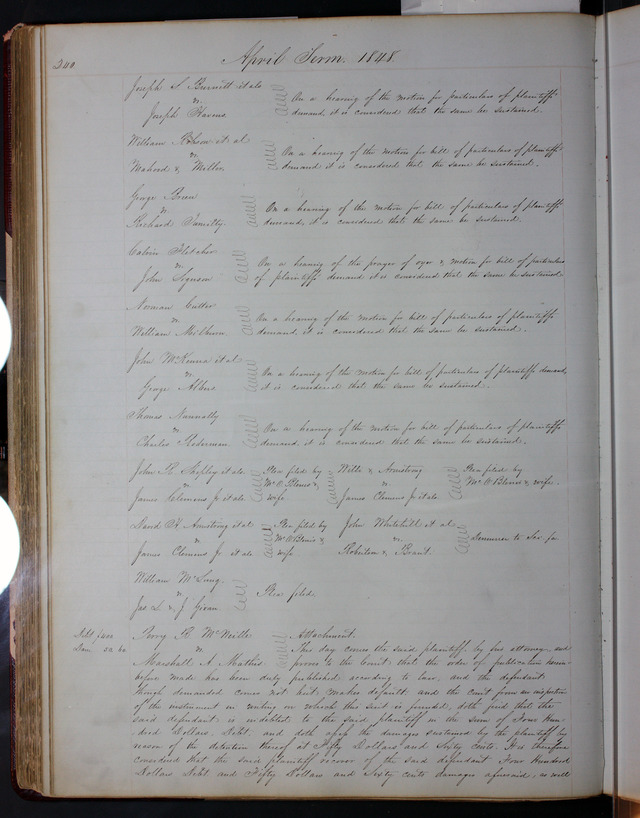 240
April Term. 1848.
Joseph S Burnett et als
vs
Joseph Havens
On a hearing of the motion for particulars of plaintiffs
demand it is considered that the same be sustained.
William et al
vs
& Miller
On a hearing of the motion for bill of particulars of plaintiffs
demand it is considered that the same be sustained.
George Breen
vs
Richard
On a hearing of the motion for bill of particulars of plaintiffs
demand, it is considered that the same be sustained.
Calvin Fletcher
vs
John
On a hearing of the prayer of oyer & motion for bill of particulars
of plaintiffs demand it is considered that the same be sustained.
Norman Cutter
vs
William Milburn
On a hearing of the motion for bill of particulars of plaintiffs
demand, it is considered that the same be sustained.
John McKenna et al
vs
George Albers
On a hearing of the motion for bill of particulars of plaintiffs demand,
it is considered that the same be sustained.
Thomas Nunnally
vs
Charles
On a hearing of the motion for bill of particulars of plaintiffs
demand, it is considered that the same be sustained.
John R. Shepley et als
vs
James Clemens Jr et als
Plea filed by
Wm &
wife
Wills & Armstrong
vs
James Clemens Jr et als
Plea filed by
Wm & wife.
David H. Armstrong et al
vs
James Clemens Jr et als
Plea filed by
Wm &
wife
John Whitehill et al
vs
Robertson & Brant
Demurrer to Sci fa
William McLung
vs
Jas L & J
Plea filed.
Debt $400
Dam 50.60
Perry R. McNeille
vs
Marshall A. Mathis
Attachment.
This day comes the said plaintiff by his attorney and
proves to the Court that the order of publication herein
before made has been duly published according to law, and the defendant
though demanded comes not but makes default: and the court from an inspection
of the instrument in writing on which this suit is founded, doth find that the
said defendant is indebted to the said plaintiff in the sum of Four Hun-
dred Dollars, Debt, and doth assess the damages sustained by the plaintiff by
reason of the detention thereof at Fifty Dollars and Sixty cents. It is therefore
considered that the said plaintiff recover of the said defendant Four Hundred
Dollars Debt and Fifty Dollars and Sixty cents damages aforesaid, as well